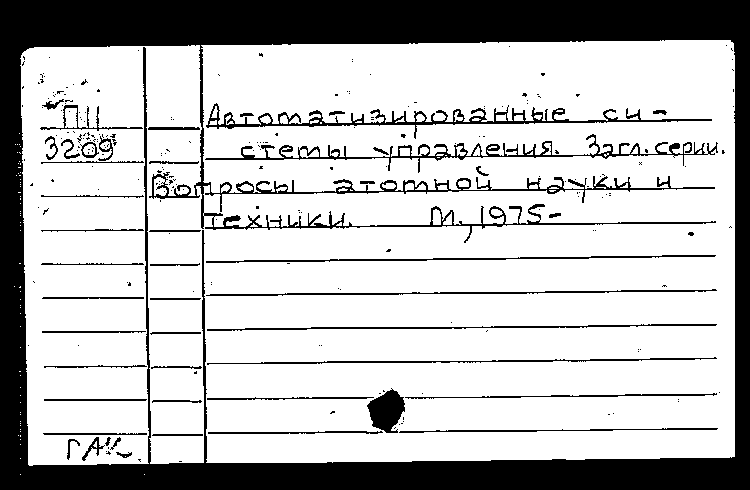 ПII
3209
Автоматизированные си-
стемы управления. Загл. серии.
Вопросы атомной науки и
техники. М., 1975-
ГАК